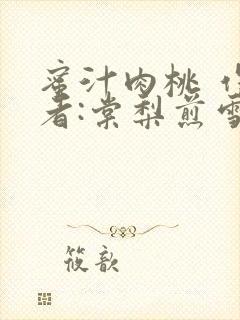 蜜汁肉桃 作
者:棠梨煎雪
筱歆